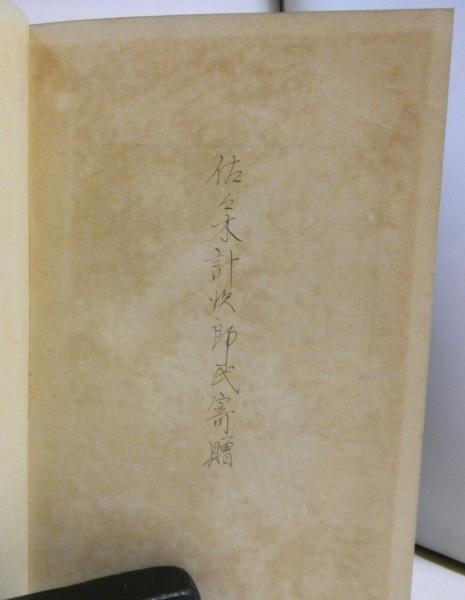 佐々木計次郎氏寄贈